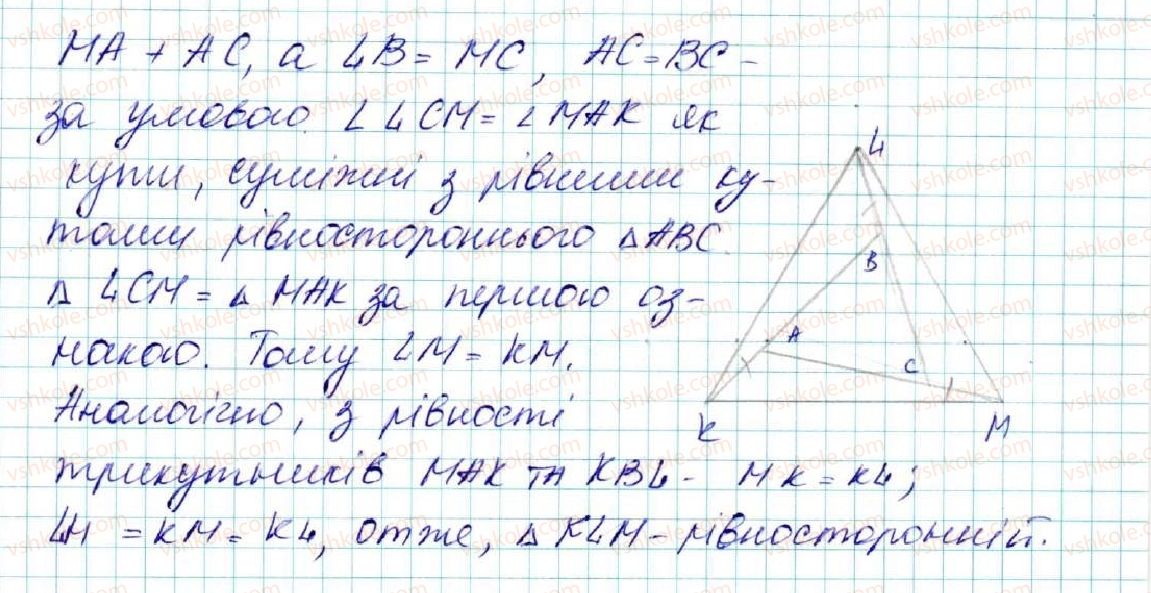 MA + AC, а LB = MC, AC = BC -
за умовою. ∠LCM = ∠MAK як
кути, суміжні з рівними ку-
тами рівностороннього △ABC.
△ LCM = △ MAK за першою оз-
накою. Тому LM = KM.
Аналогічно, з рівності
трикутників MAK та KBL - MK = KL;
LM = KM = KL, отже, △ KLM - рівносторонній.
L
B
A
C
K
M
vshkole.com